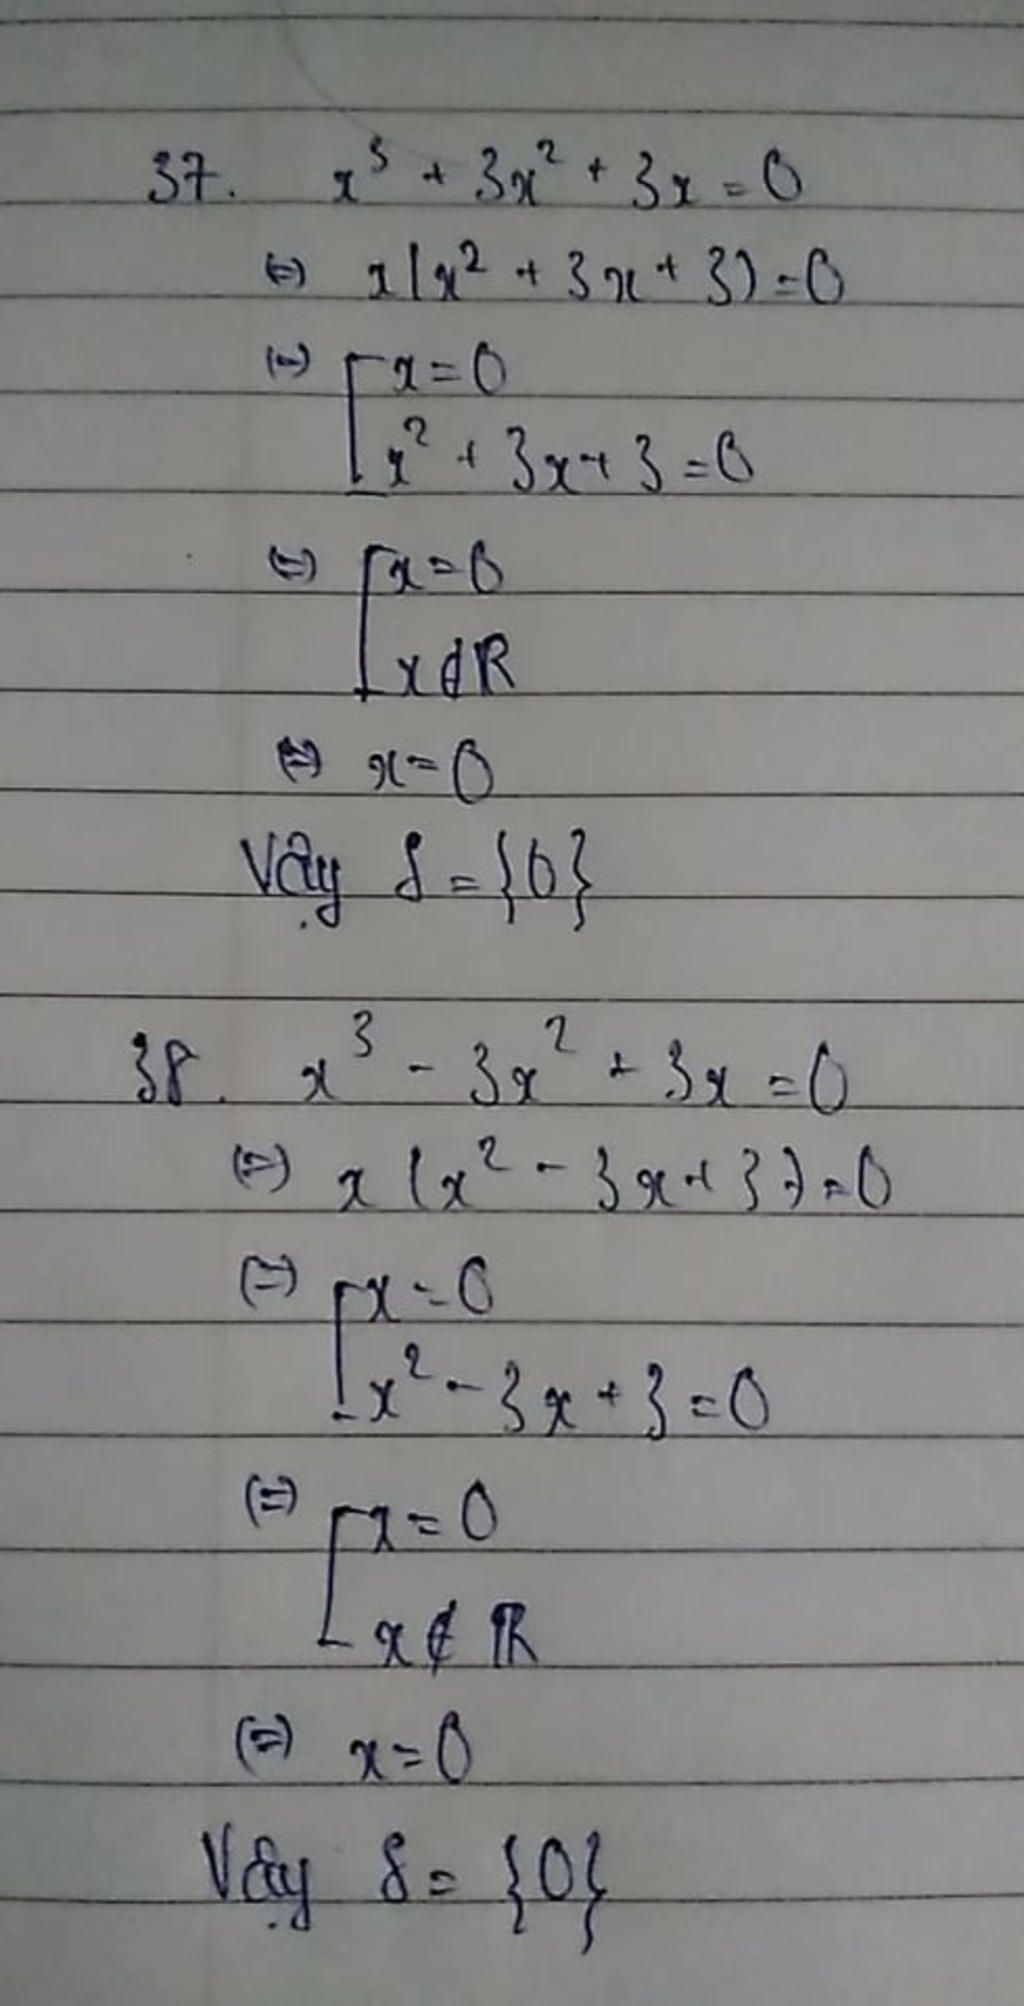 37. x³ + 3x² + 3x = 0
⇔ x(x² + 3x + 3) = 0
⇔ [ x = 0
x² + 3x + 3 = 0
⇔ [ x = 0
x ∉ ℝ
⇔ x = 0
Vậy S = {0}
38. x³ - 3x² + 3x = 0
⇔ x(x² - 3x + 3) = 0
⇔ [ x = 0
x² - 3x + 3 = 0
⇔ [ x = 0
x ∉ ℝ
⇔ x = 0
Vậy S = {0}